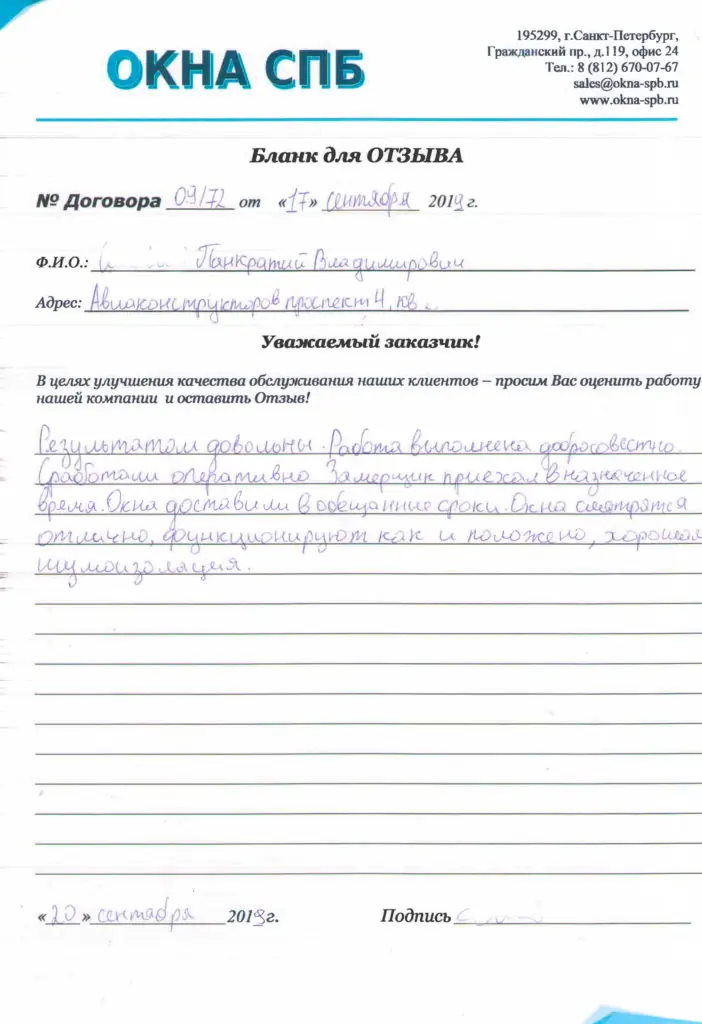 ОКНА СПБ
195299, г.Санкт-Петербург,
Гражданский пр., д.119, офис 24
Тел.: 8 (812) 670-07-67
sales@okna-spb.ru
www.okna-spb.ru
Бланк для ОТЗЫВА
№ Договора 09/72 от «17» сентября 2019 г.
Ф.И.О.: Панкратий Владимирович
Адрес: Авиаконструкторов проспект 4, кв
Уважаемый заказчик!
В целях улучшения качества обслуживания наших клиентов – просим Вас оценить работу
нашей компании и оставить Отзыв!
Результатом довольны. Работа выполнена добросовестно.
Сработали оперативно Замерщик приехал в назначенное
время. Окна доставили в обещанные сроки. Окна смотрятся
отлично, функционируют как и положено, хорошая
шумоизоляция.
«20» сентября 2019г.
Подпись